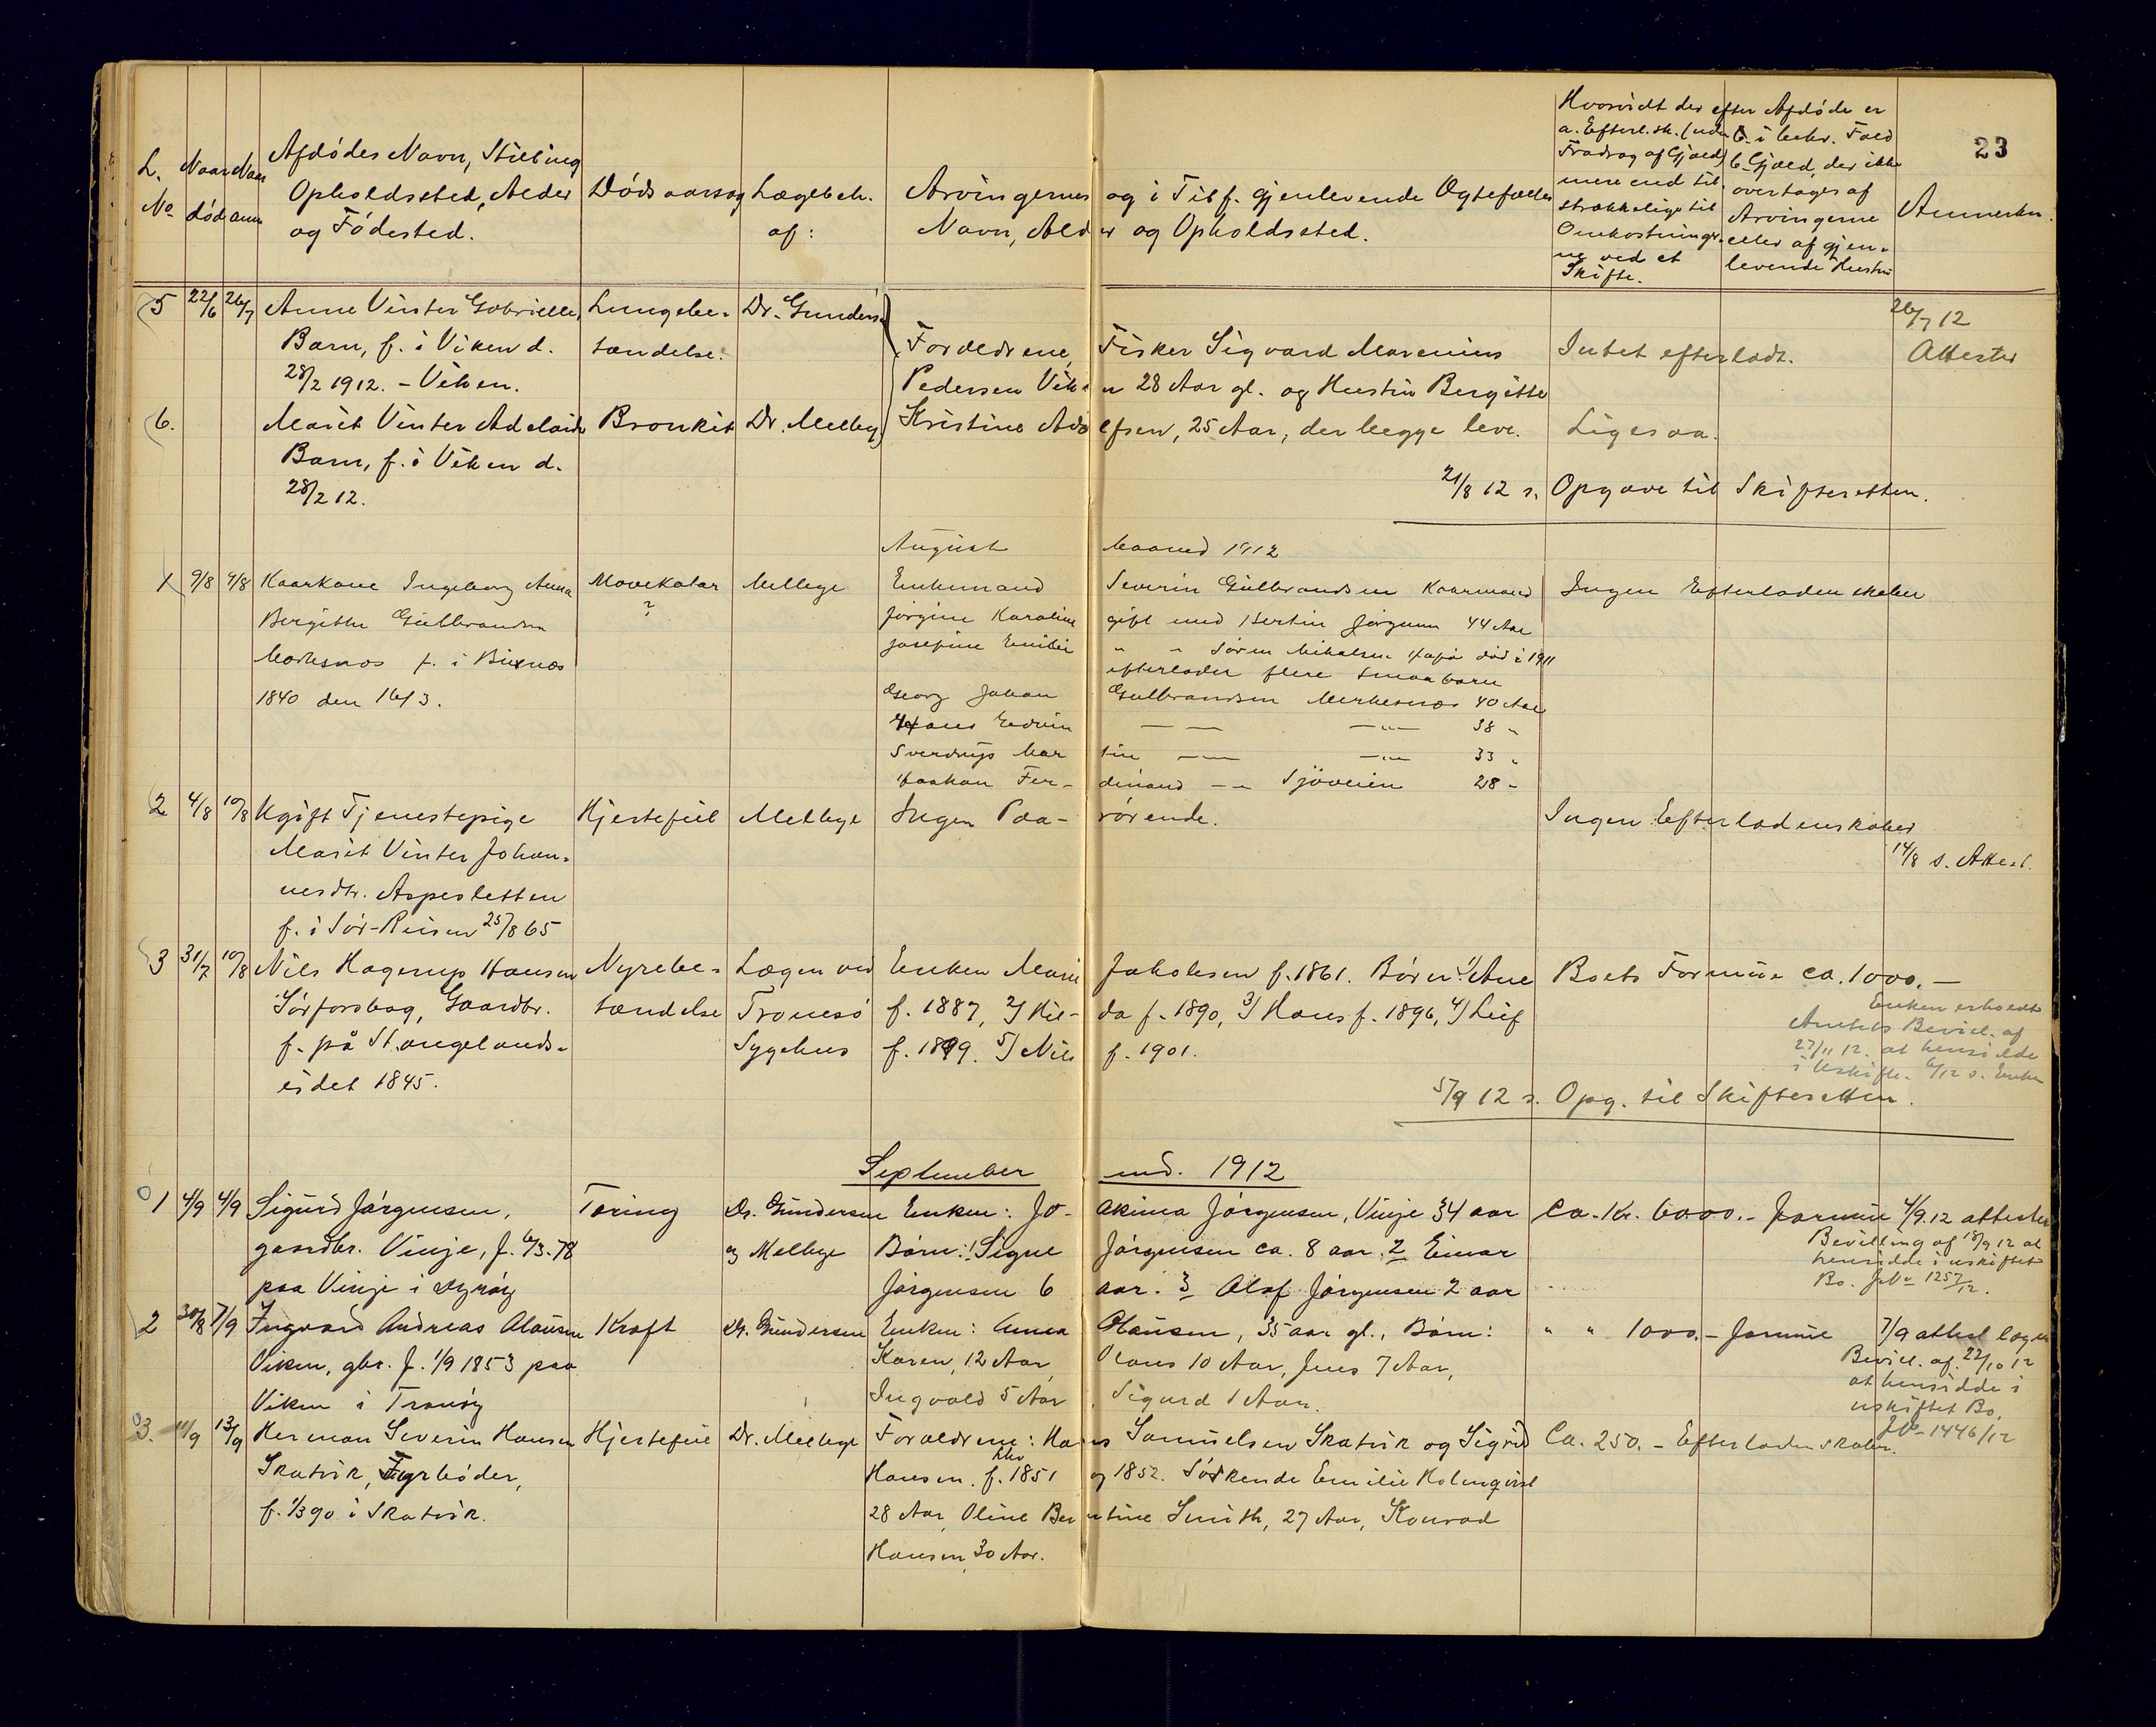 23
L. No
Naar død
Naar anm
Afdødes Navn, Stilling
Opholdssted, Alder
og Fødested.
Dødsaarsag
Lægebeh.
af:
Arvingernes og i Tilf. gjenlevende Ægtefælles
Navn, Alder og Opholdssted.
Hvorvidt der efter Afdøde er
a. Efterl.sk. (uden
Fradrag af Gjæld)
mere end til-
strækkelige til
Omkostninger-
ne ved et
Skifte.
b. i bekr. Fald
Gjæld, der ikke
overtages af
Arvingerne
eller af gjen-
levende Hustru
Anmerkn.
5 22/6 26/7 Anne Vinter Gabrielle, Lungebe- Dr. Gunders.
Barn, f. i Viken d. tændelse. Forældrene, Fisker Sigvard Marenius Intet efterladt. 26/7 12 Attester
28/2 1912. - Viken. Pedersen Viken 28 Aar gl. og Hustru Bergitte
6. Marit Vinter Adelaide Bronkit Dr. Melbye Kristine Adolfsen, 25 Aar, der begge leve. Ligesaa.
Barn, f. i Viken d.
28/2 12.
21/8 12 s. Opgave til Skifteretten.
August Maaned 1912
1 9/8 9/8 Kaarkone Ingeborg Anna Mavekatar Melbye Enkemand Severin Gulbrandsen Kaarmand Ingen Efterladenskaber
Bergitte Gulbrandsen ? Jørgine Karoline gift med Bertin Jørgensen 44 Aar
f. i Josefine Emilie " " Søren Mikalsen død i 1911
1840 den 16/3. efterlader flere Smaabørn
Georg Johan Gulbrandsen 40 Aar
Hans Edvin — — —"— 38 "
Sverdrup Martin — —"— 33 "
Haakon Ferdinand —"— Sjøveien 28 "
2 4/8 10/8 Ugift Tjenestepige Hjertefeil Melbye Ingen Paarørende. Ingen Efterladenskaber
Marit Vinter Johan- 14/8 s. Attest.
nesdtr. Aspesletten
f. i Sør-Reisen 25/8 65
3 31/7 10/8 Nils Hagerup Hansen Nyrebe- Lægen ved Enken Marie Jakobsen f. 1861. Børn: 1/ Ane Boets Formue ca. 1000.—
Sørforsbag, Gaardbr. tændelse Tromsø f. 1887, 2/ Hil-da f. 1890, 3/ Hans f. 1896, 4/ Leif
f. på Stangelands- Sygehus f. 1899. 5/ Nils f. 1901.
eidet 1845.
Enken erholdt
Amtets Bevil. af
27/11 12. at hensidde
i Uskifte. 6/12 s. Enken
5/9 12 s. Opg. til Skifteretten.
September md. 1912
1 4/9 4/9 Sigurd Jørgensen, Tæring Dr. Gundersen Enken: Joakima Jørgensen, Vinje 34 aar Ca. Kr. 6000.- formue 4/9.12 attester
gaardbr. Vinje, f. 6/3-78 og Melbye Børn: 1 Signe Jørgensen ca. 8 aar. 2 Einar
paa Vinje i Dyrøy Jørgensen 6 aar. 3 Olaf Jørgensen 2 aar
Bevilling af 18/9 12 at
hensidde i uskiftet
Bo. JNo 1257/12.
2 30/8 7/9 Ingvard Andreas Olausen Kræft Dr. Gundersen Enken: Anna Olausen, 35 aar gl., Børn: " " 1000.- formue 7/9 attest lægen
Viken, gbr. f. 1/9 1853 paa Karen, 12 Aar, Olaus 10 Aar, Jens 7 Aar,
Viken i Tranøy Ingvald 5 Aar, Sigurd 1 Aar.
Bevil. af 22/10 12
at hensidde i
uskiftet Bo.
JNo 1446/12
3. 11/9 13/9 Herman Severin Hansen Hjertefeil Dr. Melbye Forældrene: Hans Samuelsen Skatvik og Sigrid Ca. 250.- Efterladenskaber.
Skatvik, Fyrbøder, Hansen. f. hhv 1851 og 1852. Søskende Emilie Holmqvist
f. 1/3 90 i Skatvik. 28 Aar, Oline Berntine Smith, 27 Aar, Konrad
Hansen, 30 Aar.